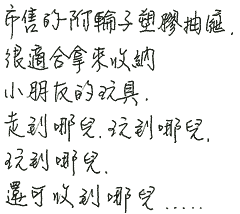 市售的附輪子塑膠抽屜,
很適合拿來收納
小朋友的玩具.
走到哪兒.玩到哪兒.
玩到哪兒.
還可收到哪兒.....